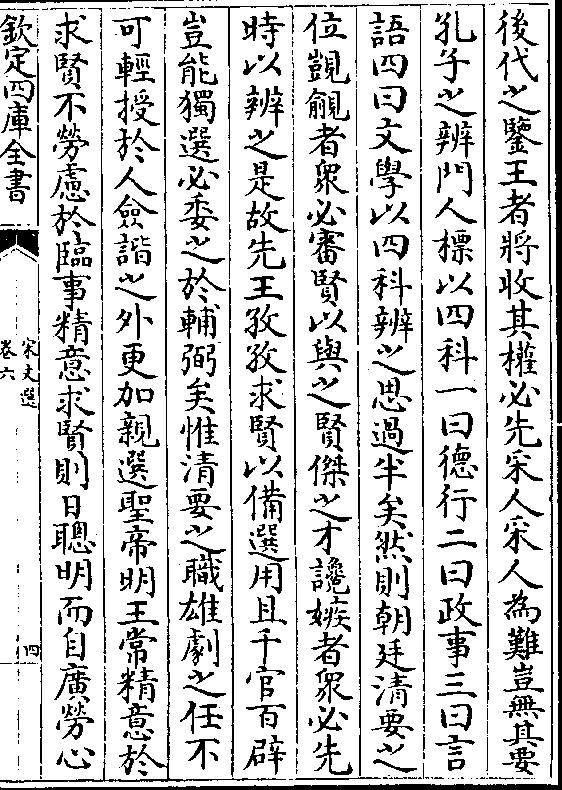 後代之鑒王者將收其權必先宷人宷人為難豈無其要
孔子之辨門人標以四科一曰德行二曰政事三曰言
語四曰文學以四科辨之思過半矣然則朝廷清要之
位覬覦者衆必審賢以與之賢傑之才讒嫉者衆必先
時以辨之是故先王孜孜求賢以備選用且千官百辟
豈能獨選必委之於輔弼矣惟清要之職雄劇之任不
可輕授於人僉諧之外更加親選聖帝明王常精意於
求賢不勞慮於臨事精意求賢則日聰明而自廣勞心
欽定四庫全書
宋文選
卷六
四